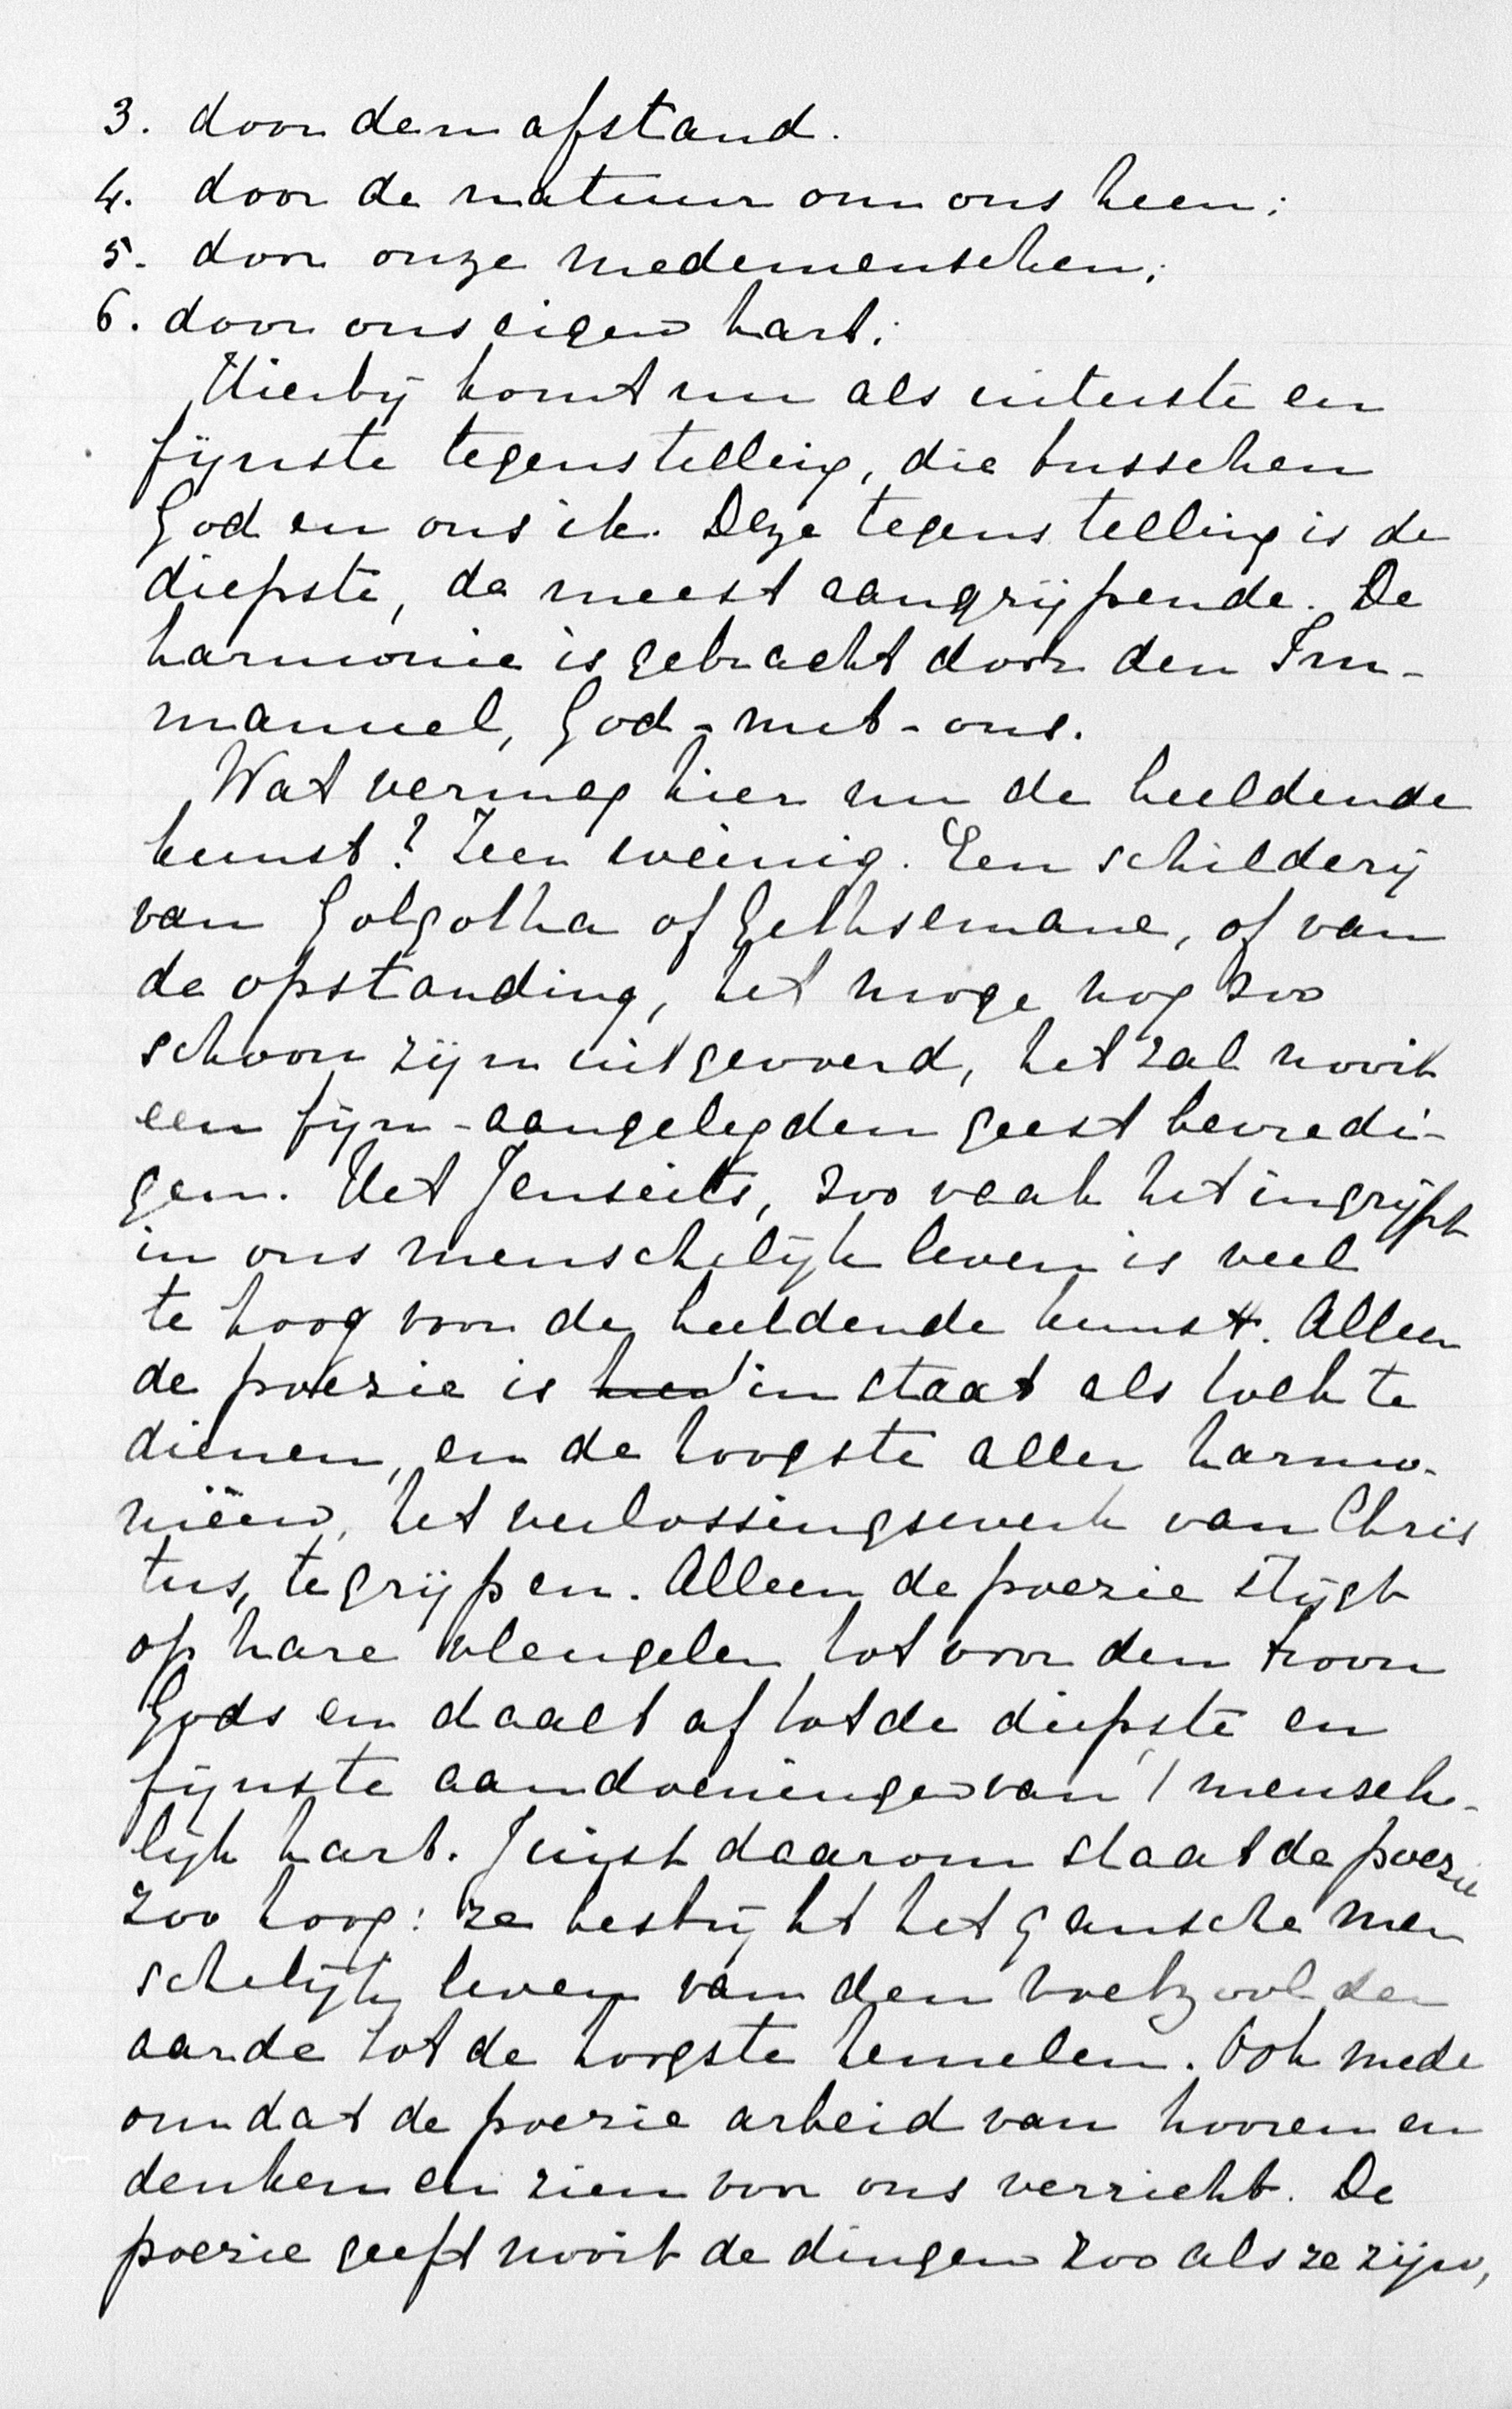 3. door den afstand.
4. door de natuur om ons heen;
5. door onze medemenschen;
6. door ons eigen hart;
Hierbij komt nu als uiterste en
fijnste tegenstelling, die tusschen
God en ons ik. Deze tegenstelling is de
diepste, de meest aangrijpende. De
harmonie is gebracht door den Im-
manuel, God-met-ons.
Wat vermag hier nu de beeldende
kunst? Zeer weinig. Een schilderij
van Golgotha of Gethsemane, of van
de opstanding, het moge nog zoo
schoon zijn uitgevoerd, het zal nooit
een fijn-aangelegden geest bevredi-
gen. Het Jenseits, zoo vaak het ingrijpt
in ons menschelijk leven is veel
te hoog voor de beeldende kunst. Alleen
de poëzie is in staat als tolk te
dienen, en de hoogste aller harmo-
nieën, het verlossingswerk van Chris
tus, te grijpen. Alleen de poezie stijgt
op hare vleugelen tot voor den troon
Gods en daalt af tot de diepste en
fijnste aandoeningen van 't mensche-
lijk hart. Juist daarom staat de poezie
zoo hoog: ze bestrijkt het gansche men
schelijk leven van den voetzool der
aarde tot de hoogste hemelen. Ook mede
omdat de poezie arbeid van hooren en
denken en zien voor ons verricht. De
poezie geeft nooit de dingen zooals ze zijn,